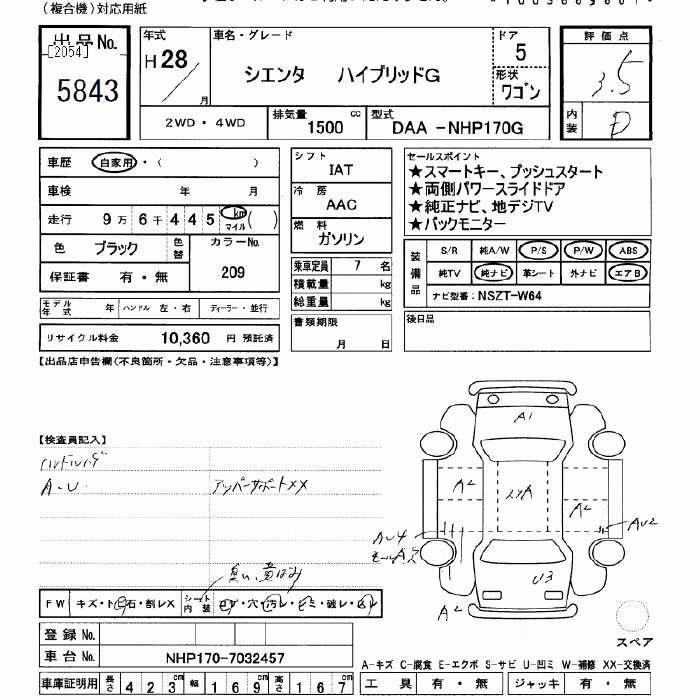 (複合機)対応用紙
出品No.
[2054]
5843
年式
H28
月
車名・グレード
シエンタ ハイブリッドG
ドア
5
形状
ワゴン
2WD・4WD
排気量
1500 cc
型式
DAA -NHP170G
評価点
3.5
内装
D
車歴 自家用・( )
車検 年 月
走行 9万6千445 km マイル ( )
色 ブラック 色替
カラーNo.
209
保証書 有・無
モデル年式 年 ハンドル 左・右 ディーラー・並行
リサイクル料金 10,360 円 預託済
シフト
IAT
冷房
AAC
燃料
ガソリン
乗車定員 7 名
積載量 kg
総重量 kg
書類期限
月 日
セールスポイント
★スマートキー、プッシュスタート
★両側パワースライドドア
★純正ナビ、地デジTV
★バックモニター
装備品
S/R 純A/W P/S P/W ABS
純TV 純ナビ 革シート 外ナビ エアB
ナビ型番: NSZT-W64
後日品
【出品店申告欄(不良箇所・欠品・注意事項等)】
【検査員記入】
A-U
アッパーサポートXX
臭い、黄ばみ
FW キズ・ト石・割レX シート内装
A1
A2
A2
AU2
AU4
U3
A2
スペア
登録No.
車台No. NHP170-7032457
車庫証明用 長さ 423 幅 169 高さ 167
A-キズ C-腐食 E-エクボ S-サビ U-凹ミ W-補修 XX-交換済
工具 有・無 ジャッキ 有・無